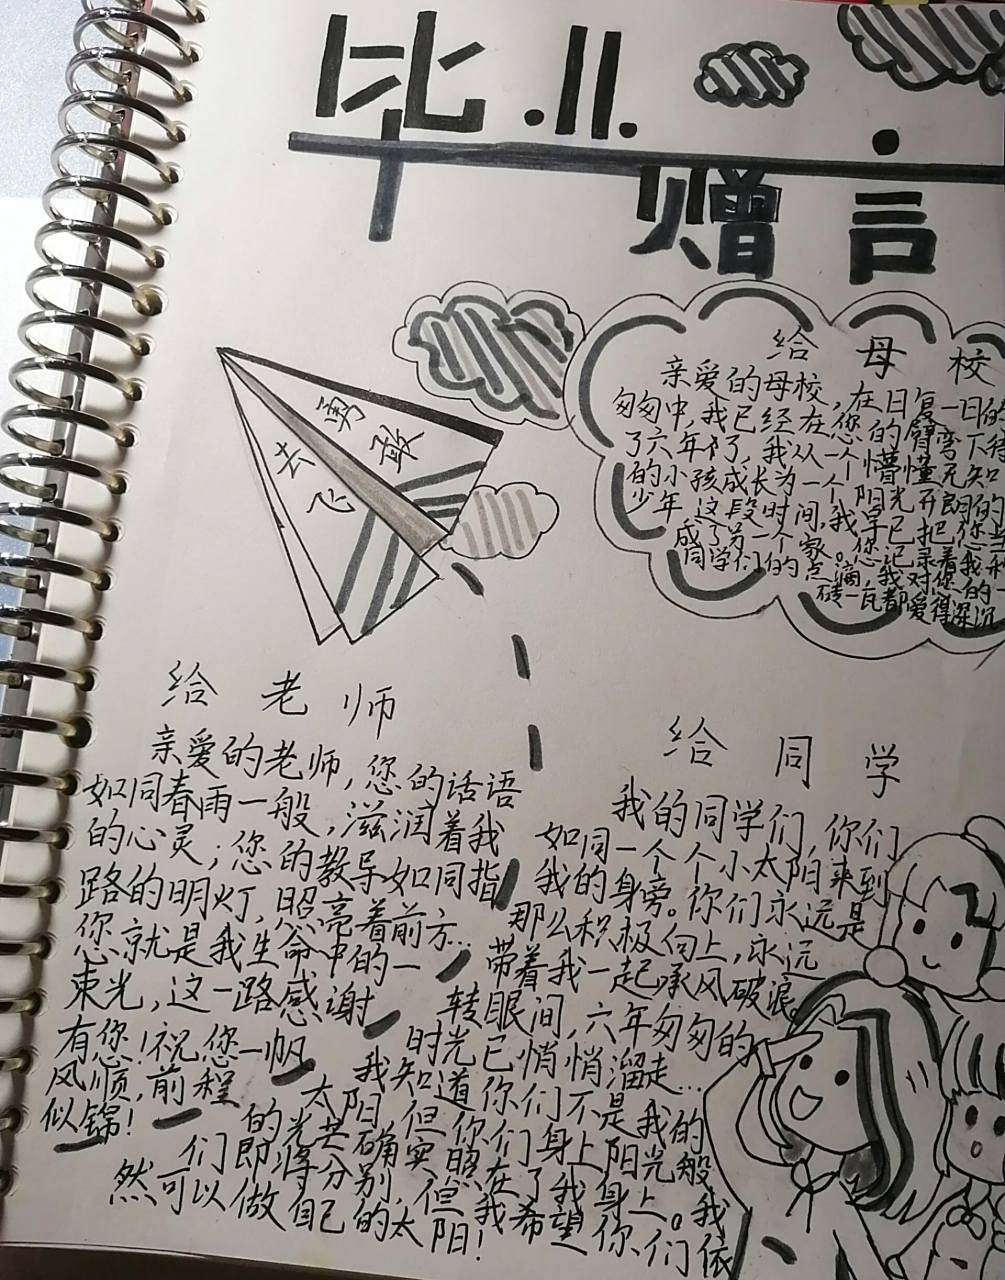 毕业
赠言
勇敢
去飞
给母校
亲爱的母校,在日复一日的
匆匆中,我已经在您的臂弯下待
了六年了,我从一个懵懂无知
的小孩成长为一个阳光开朗的
少年,这段时间,我早已把您当
成了另一个家。您记录着我和
同学们的点滴,我对您的一
砖一瓦都爱得深沉。
给老师
亲爱的老师,您的话语
如同春雨一般,滋润着我
的心灵;您的教导如同指
路的明灯,照亮着前方…
您就是我生命中的一
束光,这一路感谢
有您!祝您一帆
风顺,前程
似锦!
给同学
我的同学们,你们
如同一个个小太阳来到
我的身旁。你们永远是
那么积极向上,永远
带着我一起乘风破浪。
转眼间,六年匆匆的
时光已悄悄溜走…
我知道你们不是我的
太阳,但你们身上阳光般
的光确实照在了我身上。我
们即将分别,但我希望你们依
然可以做自己的太阳!